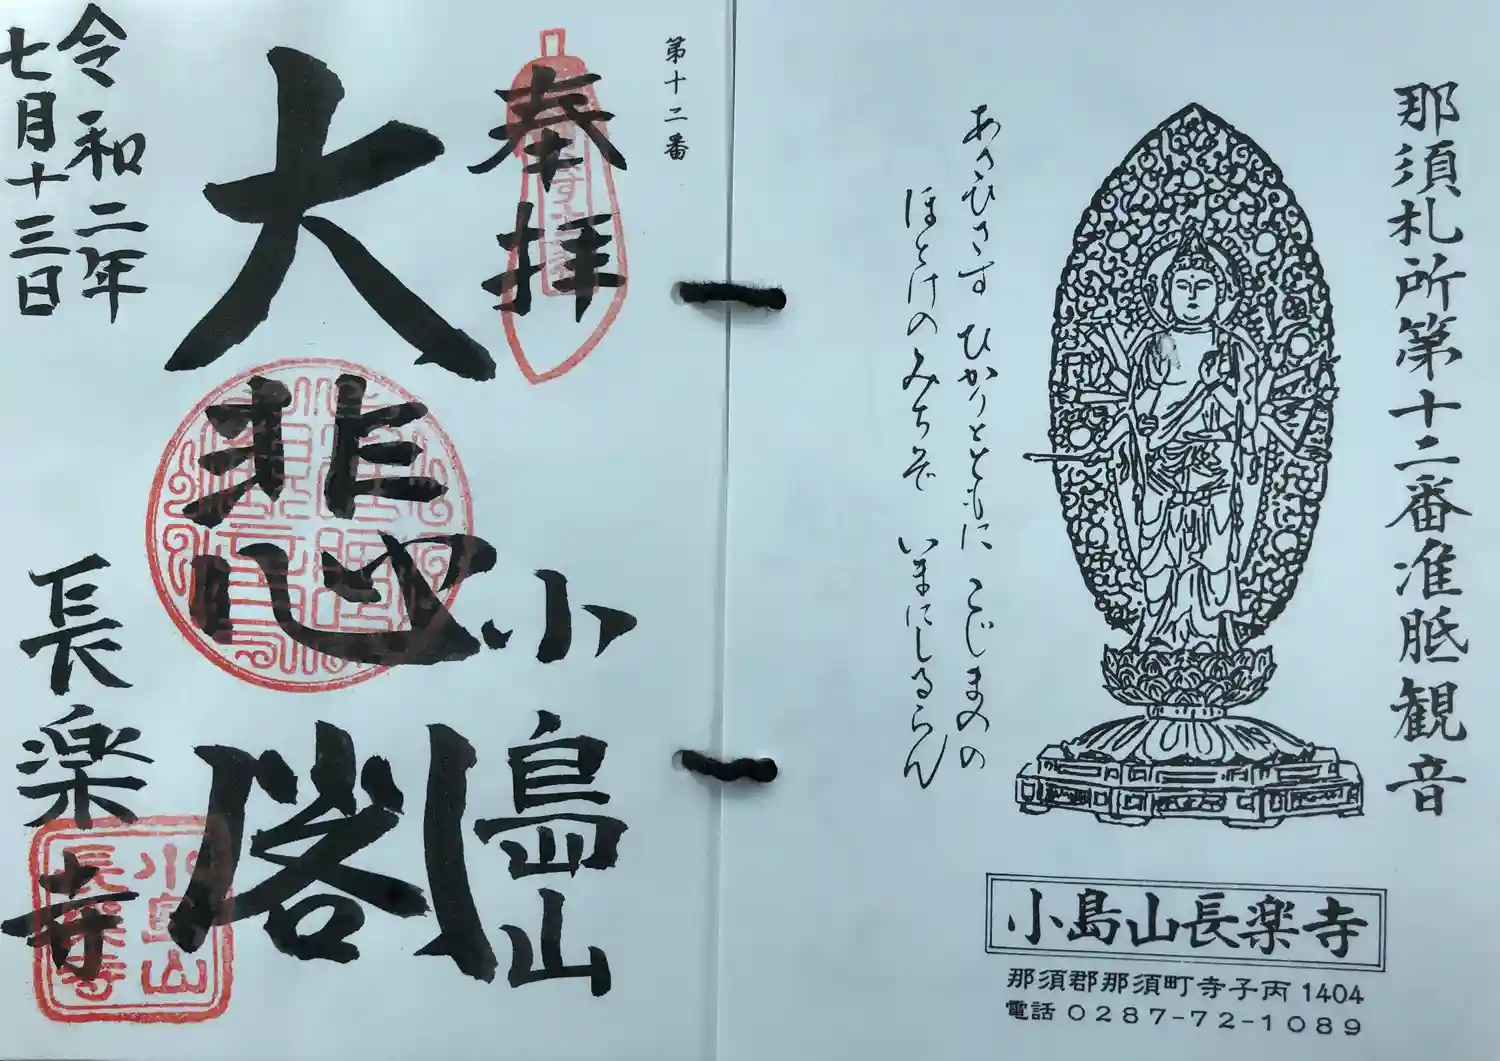 那須札所第十二番准胝観音
あさひさす ひかりとともに こじまのの
ほとけのみちぞ いまにしるらん
小島山長楽寺
那須郡那須町寺子丙1404
電話0287-72-1089
第十二番
奉拝
小島山
大悲閣
令和二年
七月十三日
長楽寺
小島山
長楽寺